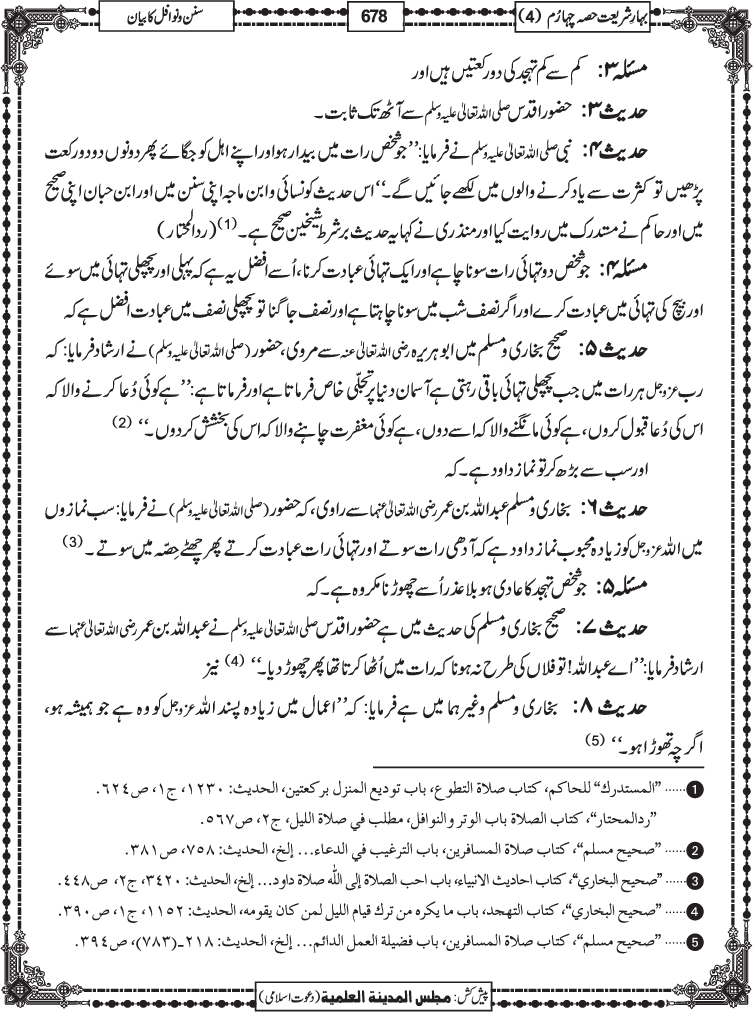 بہارِ شریعت حصہ چہارُم (4)
678
سنن و نوافل کا بیان
مسئلہ ۳: کم سے کم تہجد کی دو رکعتیں ہیں اور
حدیث ۳: حضور اقدس صلی اللہ تعالیٰ علیہ وسلم سے آٹھ تک ثابت۔
حدیث ۴: نبی صلی اللہ تعالیٰ علیہ وسلم نے فرمایا: ’’جو شخص رات میں بیدار ہو اور اپنے اہل کو جگائے پھر دونوں دو دو رکعت
پڑھیں تو کثرت سے یاد کرنے والوں میں لکھے جائیں گے۔‘‘ اس حدیث کو نسائی و ابن ماجہ اپنی سنن میں اور ابن حبان اپنی صحیح
میں اور حاکم نے مستدرک میں روایت کیا اور منذری نے کہا یہ حدیث برشرط شیخین صحیح ہے۔ (1) (ردالمحتار)
مسئلہ ۴: جو شخص دو تہائی رات سونا چاہے اور ایک تہائی عبادت کرنا، اُسے افضل یہ ہے کہ پہلی اور پچھلی تہائی میں سوئے
اور بیچ کی تہائی میں عبادت کرے اور اگر نصف شب میں سونا چاہتا ہے اور نصف جاگنا تو پچھلی نصف میں عبادت افضل ہے کہ
حدیث ۵: صحیح بخاری و مسلم میں ابوہریرہ رضی اللہ تعالیٰ عنہ سے مروی، حضور (صلی اللہ تعالیٰ علیہ وسلم) نے ارشاد فرمایا: کہ
رب عزوجل ہر رات میں جب پچھلی تہائی باقی رہتی ہے آسمان دنیا پر تجلّی خاص فرماتا ہے اور فرماتا ہے: ’’ہے کوئی دُعا کرنے والا کہ
اس کی دُعا قبول کروں، ہے کوئی مانگنے والا کہ اسے دوں، ہے کوئی مغفرت چاہنے والا کہ اس کی بخشش کر دوں۔‘‘ (2)
اور سب سے بڑھ کر تو نماز داود ہے۔ کہ
حدیث ۶: بخاری و مسلم عبداللہ بن عمر رضی اللہ تعالیٰ عنہما سے راوی، کہ حضور (صلی اللہ تعالیٰ علیہ وسلم) نے فرمایا: سب نمازوں
میں اللہ عزوجل کو زیادہ محبوب نماز داود ہے کہ آدھی رات سوتے اور تہائی رات عبادت کرتے پھر چھٹے حِصّہ میں سوتے۔ (3)
مسئلہ ۵: جو شخص تہجد کا عادی ہو بلا عذر اُسے چھوڑنا مکروہ ہے۔ کہ
حدیث ۷: صحیح بخاری و مسلم کی حدیث میں ہے حضور اقدس صلی اللہ تعالیٰ علیہ وسلم نے عبداللہ بن عمر رضی اللہ تعالیٰ عنہما سے
ارشاد فرمایا: ’’اے عبداللہ! تو فلاں کی طرح نہ ہونا کہ رات میں اُٹھا کرتا تھا پھر چھوڑ دیا۔‘‘ (4) نیز
حدیث ۸: بخاری و مسلم وغیرہما میں ہے فرمایا: کہ ’’اعمال میں زیادہ پسند اللہ عزوجل کو وہ ہے جو ہمیشہ ہو،
اگرچہ تھوڑا ہو۔‘‘ (5)
1 ...... ”المستدرك“ للحاكم، كتاب صلاة التطوع، باب توديع المنزل بركعتين، الحديث: ١٢٣٠، ج١، ص٦٢٤.
”ردالمحتار“، كتاب الصلاة باب الوتر والنوافل، مطلب في صلاة الليل، ج٢، ص٥٦٧.
2 ...... ”صحيح مسلم“، كتاب صلاة المسافرين، باب الترغيب في الدعاء... إلخ، الحديث: ٧٥٨، ص٣٨١.
3 ...... ”صحيح البخاري“، كتاب احاديث الانبياء، باب احب الصلاة إلى الله صلاة داود... إلخ، الحديث: ٣٤٢٠، ج٢، ص٤٤٨.
4 ...... ”صحيح البخاري“، كتاب التهجد، باب ما يكره من ترك قيام الليل لمن كان يقومه، الحديث: ١١٥٢، ج١، ص٣٩٠.
5 ...... ”صحيح مسلم“، كتاب صلاة المسافرين، باب فضيلة العمل الدائم... إلخ، الحديث: ٢١٨ـ(٧٨٣)، ص٣٩٤.
پیش کش: مجلس المدينة العلمية (دعوت اسلامی)